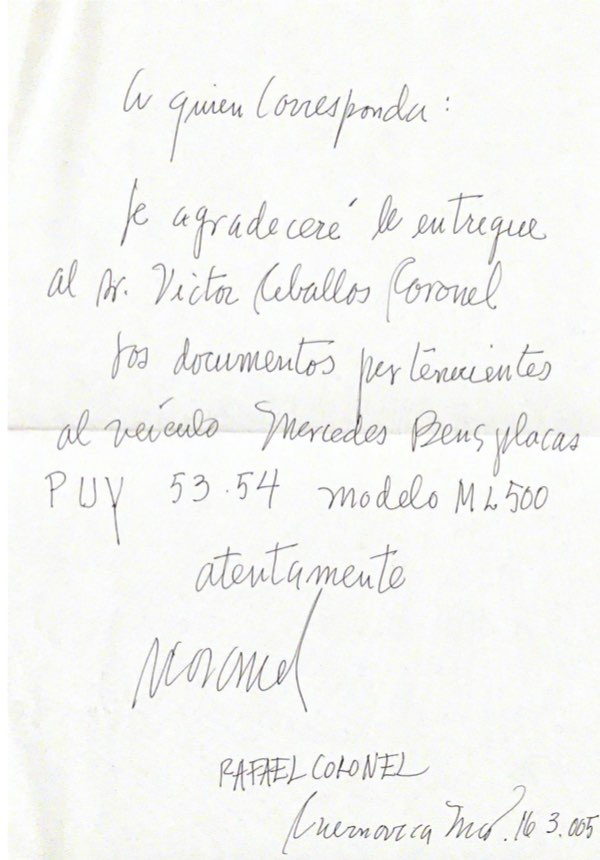 A quien Corresponda:
le agradeceré le entregue
al Sr. Victor Ceballos Coronel
los documentos pertenecientes
al veículo Mercedes Bens placas
PUY 53.54 modelo ML500
atentamente
RCoronel
RAFAEL CORONEL
Cuernavaca Mor. 16 3.005